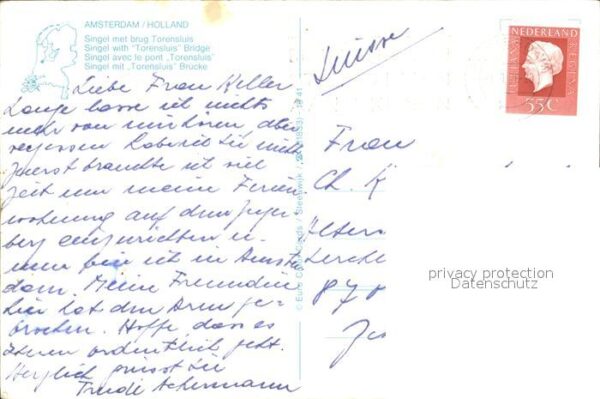 AMSTERDAM / HOLLAND
Singel met brug Torensluis
Singel with "Torensluis" Bridge
Singel avec le pont „Torensluis"
Singel mit „Torensluis" Brücke
Liebe Frau Keller
Lange lasse ich nichts
mehr von mir hören, aber
vergessen habe ich Sie nicht
Zuerst brauchte ich viel
Zeit um meine Ferien
wohnung auf dem
berg einzurichten u.
nun bin ich in Amster
dam. Meine Freundin
hier hat den Arm ge-
brochen. Hoffe dass es
Ihnen ordentlich geht.
Herzlich grüsst Sie
Trudi Ackermann
© Euro
Suisse
Frau
Ch. K
Alters
Lerche
NEDERLAND
JULIANA
REGINA
55c
privacy protection
Datenschutz